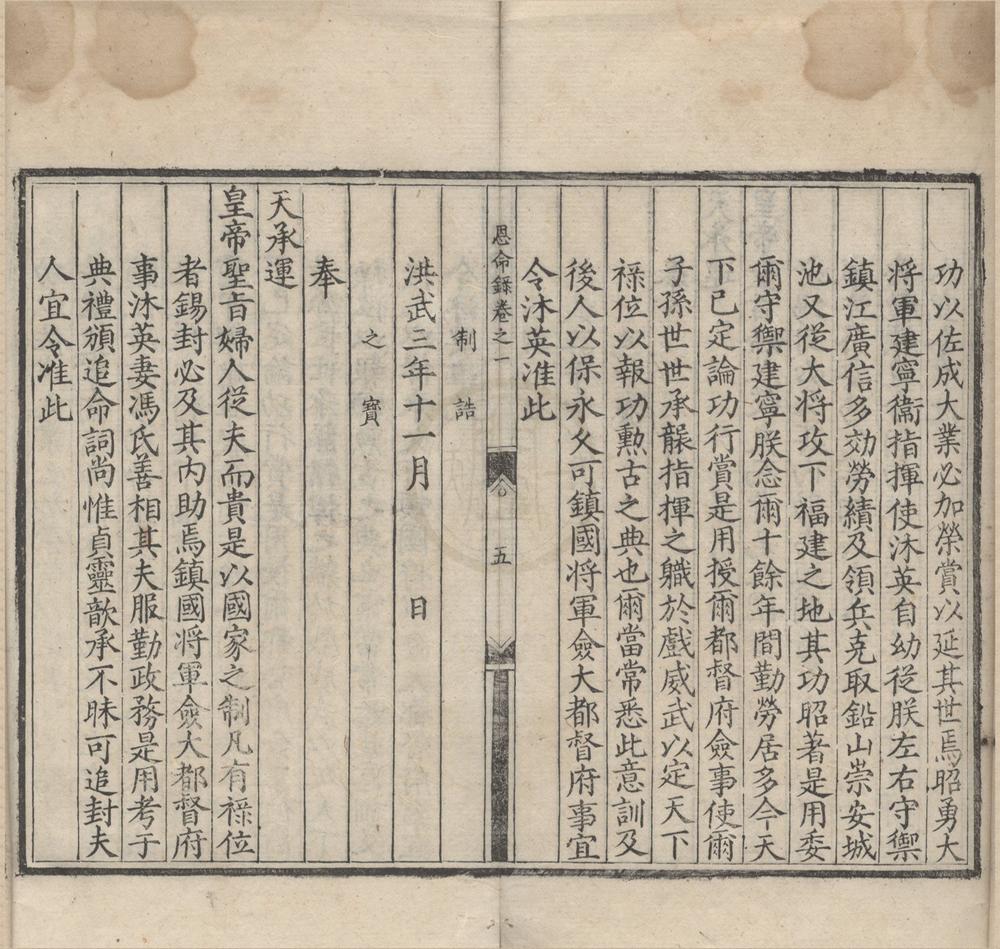 功以佐成大業必加榮賞以延其世焉昭勇大
将軍建寧衞指揮使沐英自幼從朕左右守禦
鎮江廣信多効勞績及領兵克取鉛山崇安城
池又從大将攻下福建之地其功昭著是用委
爾守禦建寧朕念爾十餘年間勤勞居多今天
下已定論功行賞是用授爾都督府僉事使爾
子孫世世承襲指揮之職於戲威武以定天下
祿位以報功勲古之典也爾當常悉此意訓及
後人以保永久可鎮國将軍僉大都督府事宜
令沐英准此
恩命錄卷之一
五
制誥
洪武三年十一月 日
之寳
奉
天承運
皇帝聖旨婦人從夫而貴是以國家之制凡有祿位
者錫封必及其内助焉鎮國将軍僉大都督府
事沐英妻馮氏善相其夫服勤政務是用考于
典禮頒追命詞尚惟貞靈歆承不昧可追封夫
人宜令准此